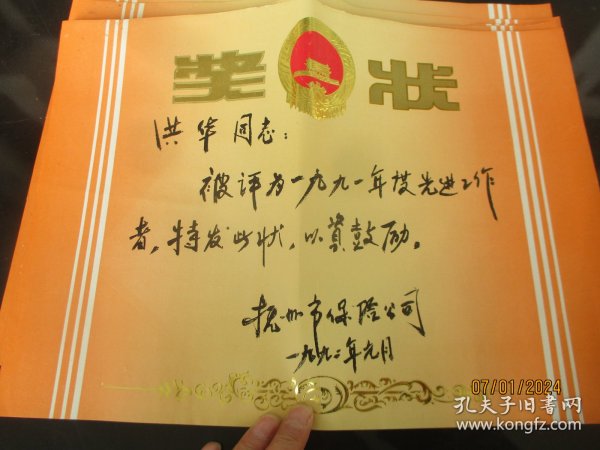 奖状
洪华同志：
被评为一九九一年度先进工作
者。特发此状，以资鼓励。
抚州市保险公司
一九九二年元月
07/01/2024
孔夫子旧书网
www.kongfz.com